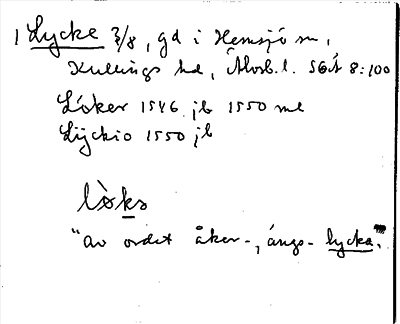 1 Lycke 3/8, gd i Hemsjö sn,
Kullings hd, Älvsb. l. SGÄ 8:100
Löker 1546 jb 1550 ml
Lÿckio 1550 jb
lòks
"av ordet åker-, ängs- lycka."